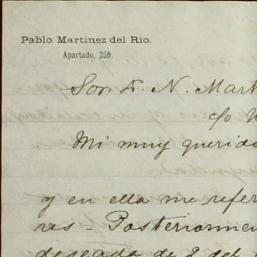 Pablo Martinez del Rio.
Apartado, 250.
Sor. F. N. Mart
c/o
Mi muy querido
y en ella me refer
res - Posteriormen
deseada de 2 del